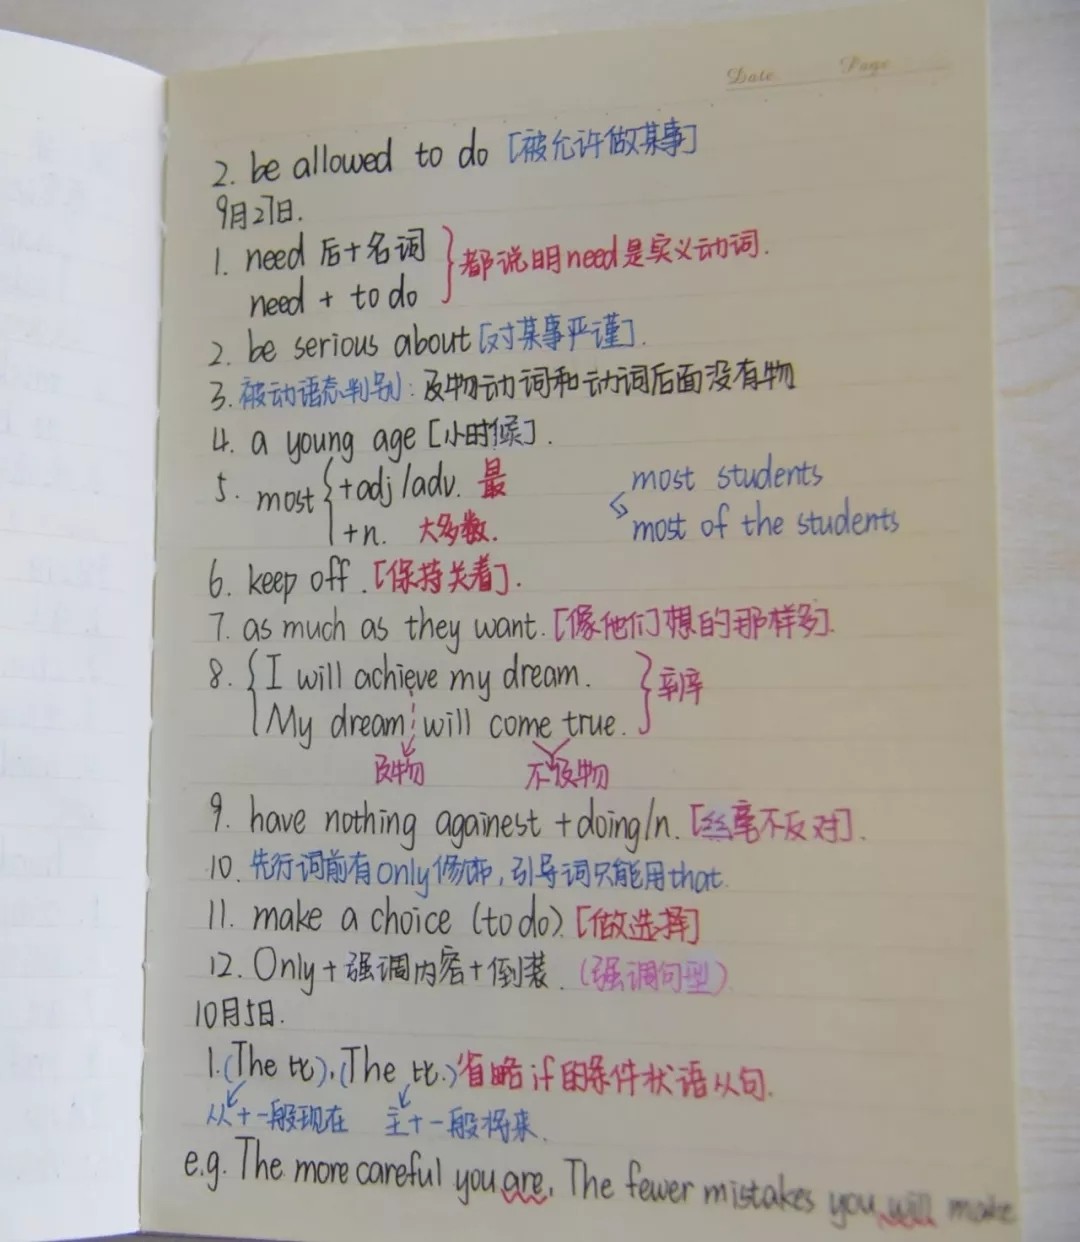 Date Page
2. be allowed to do [被允许做某事]
9月27日.
1. need 后+名词 } 都说明need是实义动词.
need + to do
2. be serious about [对某事严谨].
3. 被动语态判别: 及物动词和动词后面没有物
4. a young age [小时候].
5. most { +adj/adv. 最 most students
+n. 大多数. most of the students
6. keep off. [保持关着].
7. as much as they want. [像他们想的那样多].
8. { I will achieve my dream.
My dream will come true. }
及物 不及物
9. have nothing againest + doing/n. [丝毫不反对].
10. 先行词前有only修饰, 引导词只能用that.
11. make a choice (to do). [做选择]
12. Only + 强调内容 + 倒装. (强调句型)
10月5日.
1. (The 比), (The 比.) 省略if的条件状语从句.
从+一般现在 主+一般将来.
e.g. The more careful you are, The fewer mistakes you will make